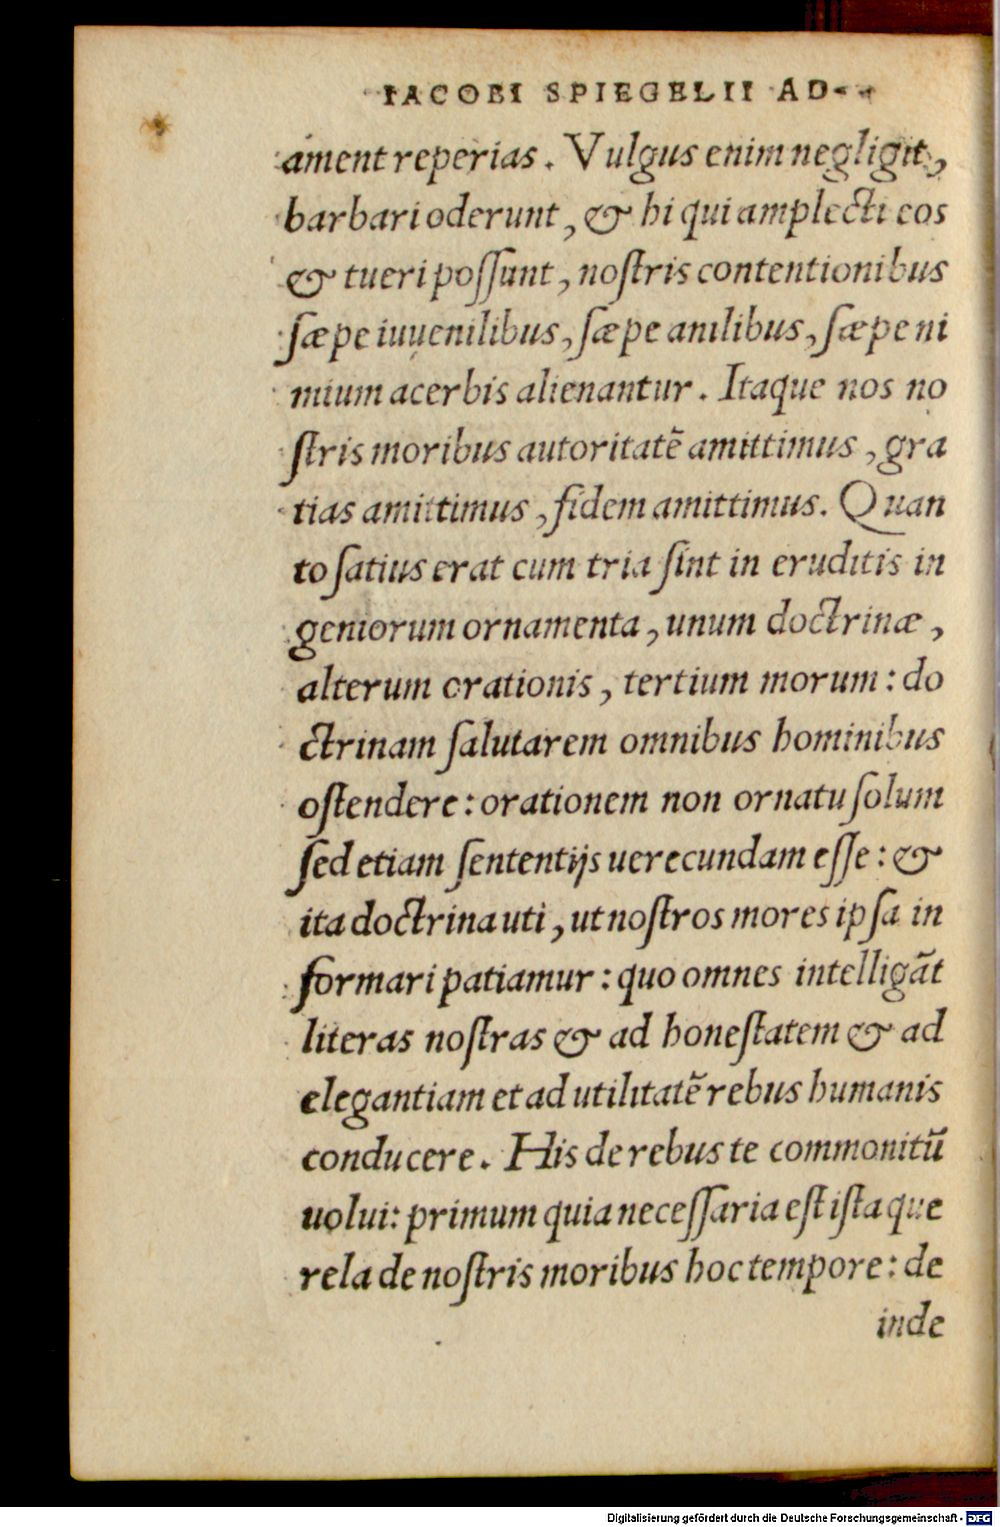 IACOBI SPIEGELII AD-
ament reperias. Vulgus enim negligit,
barbari oderunt, & hi qui amplecti eos
& tueri poſſunt, noſtris contentionibus
ſæpe iuuenilibus, ſæpe anilibus, ſæpe ni
mium acerbis alienantur. Itaque nos no
ſtris moribus autoritatẽ amittimus, gra
tias amittimus, fidem amittimus. Quan
to ſatius erat cum tria ſint in eruditis in
geniorum ornamenta, unum doctrinæ,
alterum orationis, tertium morum: do
ctrinam ſalutarem omnibus hominibus
oſtendere: orationem non ornatu ſolum
ſed etiam ſententijs uerecundam eſſe: &
ita doctrina uti, ut noſtros mores ipſa in
formari patiamur: quo omnes intelligãt
literas noſtras & ad honeſtatem & ad
elegantiam et ad utilitatẽ rebus humanis
conducere. His de rebus te commonitũ
uolui: primum quia neceſſaria eſt iſta que
rela de noſtris moribus hoc tempore: de
inde
Digitalisierung gefördert durch die Deutsche Forschungsgemeinschaft - DFG